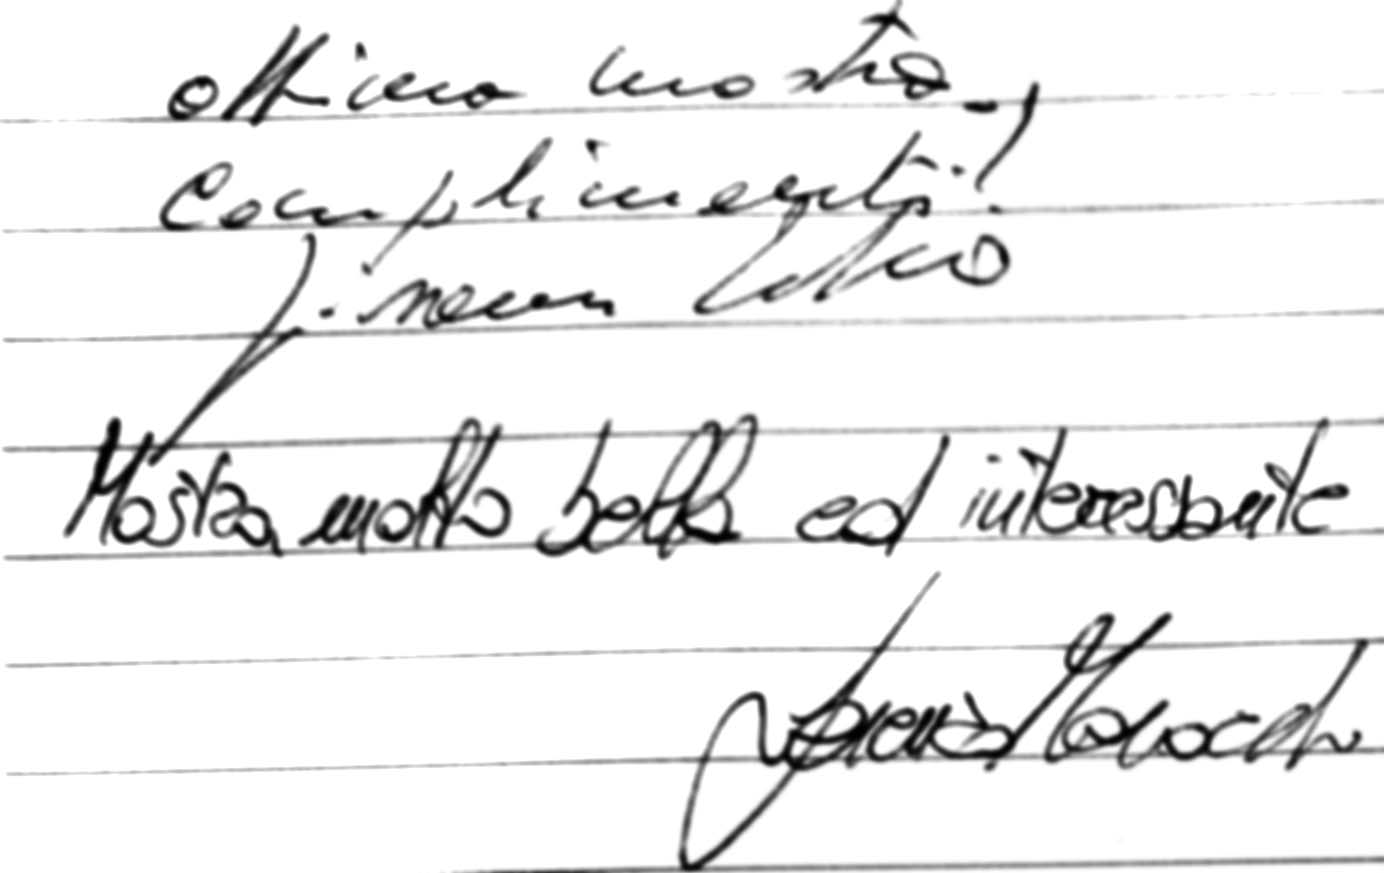 ottima mostra
Complimenti!
Mostra molto bella ed interessante